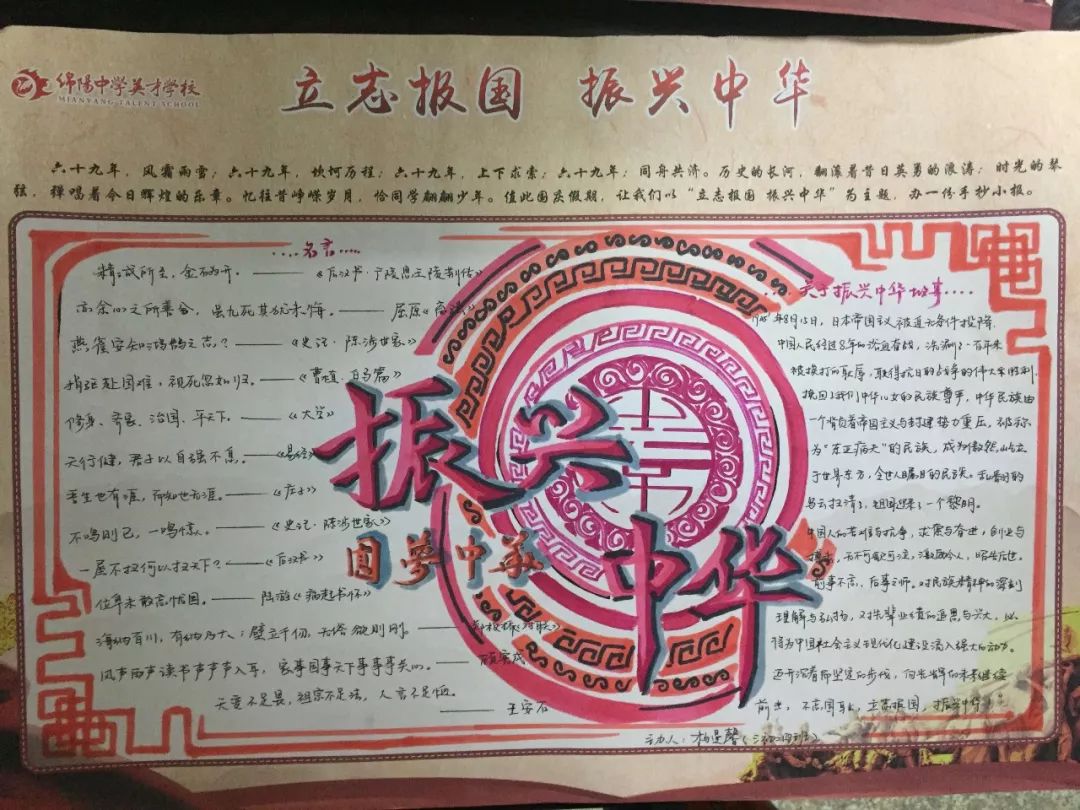 绵阳中学英才学校
MIANYANG TALENT SCHOOL
立志报国 振兴中华
六十九年,风霜雨雪;六十九年,坎坷历程;六十九年,上下求索;六十九年;同舟共济。历史的长河,翻滚着昔日英勇的浪涛;时光的琴
弦,弹唱着今日辉煌的乐章。忆往昔峥嵘岁月,恰同学翩翩少年。值此国庆假期,让我们以“立志报国 振兴中华”为主题,办一份手抄小报。
....名言....
精诚所至,金石为开。——《后汉书·广陵思王荆传》
亦余心之所善兮,虽九死其犹未悔。——屈原《离骚》
燕雀安知鸿鹄之志?——《史记·陈涉世家》
捐躯赴国难,视死忽如归。——《曹植·白马篇》
修身、齐家、治国、平天下。——《大学》
天行健,君子以自强不息。——《易经》
吾生也有涯,而知也无涯。——《庄子》
不鸣则已,一鸣惊人。——《史记·陈涉世家》
一屋不扫何以扫天下?——《后汉书》
位卑未敢忘忧国。——陆游《病起书怀》
海纳百川,有容乃大;壁立千仞,无俗欲则刚。——
风声雨声读书声声声入耳,家事国事天下事事事关心。——顾宪成
天变不足畏,祖宗不足法,人言不足恤。——王安石
振兴
中华
圆梦中华
...关于振兴中华故事....
1945年8月15日,日本帝国主义被迫无条件投降.
中国人民经过8年的浴血奋战,洗涮了一百年来
被挨打的耻辱,取得抗日战争的伟大胜利,
挽回了我们中华儿女的民族尊严,中华民族由
一个背负着帝国主义与封建势力重压,被称
为“东亚病夫”的民族,成为傲然屹立
于世界东方,令世人瞩目的民族。
乌云扫清了,祖国迎来了一个黎明。
中国人的苦难与抗争,求索与奋进,创业与
无不可歌可泣,激励今人,昭告后世。
前事不忘,后事之师。对民族精神的深刻
理解与弘扬,对先辈业绩的追思与光大,必
将为中国社会主义现代化建设注入强大的动力。
迈开沉着而坚定的步伐,向光辉的未来继续
前进,不忘国耻,立志报国,振兴中华
主办人: